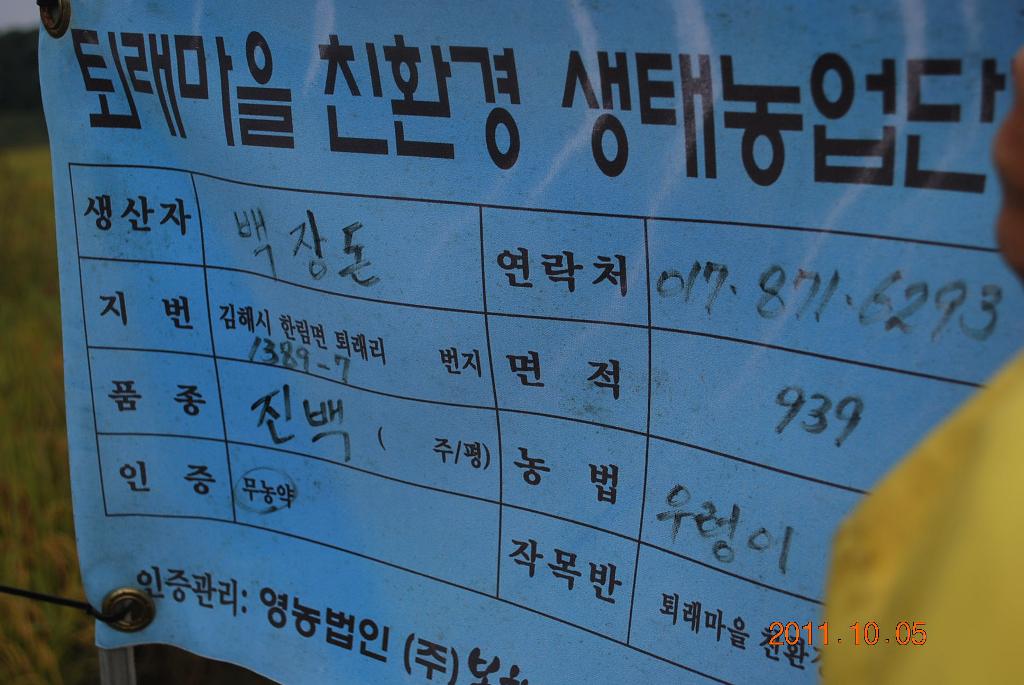 퇴래마을 친환경 생태농업단
생산자 백장돈 연락처 017·871·6293
지 번 김해시 한림면 퇴래리 1389-7 번지 면 적 939
품 종 진백 ( 주/평) 농 법 우렁이
인 증 무농약 작목반 퇴래마을 친환
인증관리: 영농법인 (주)
2011.10.05